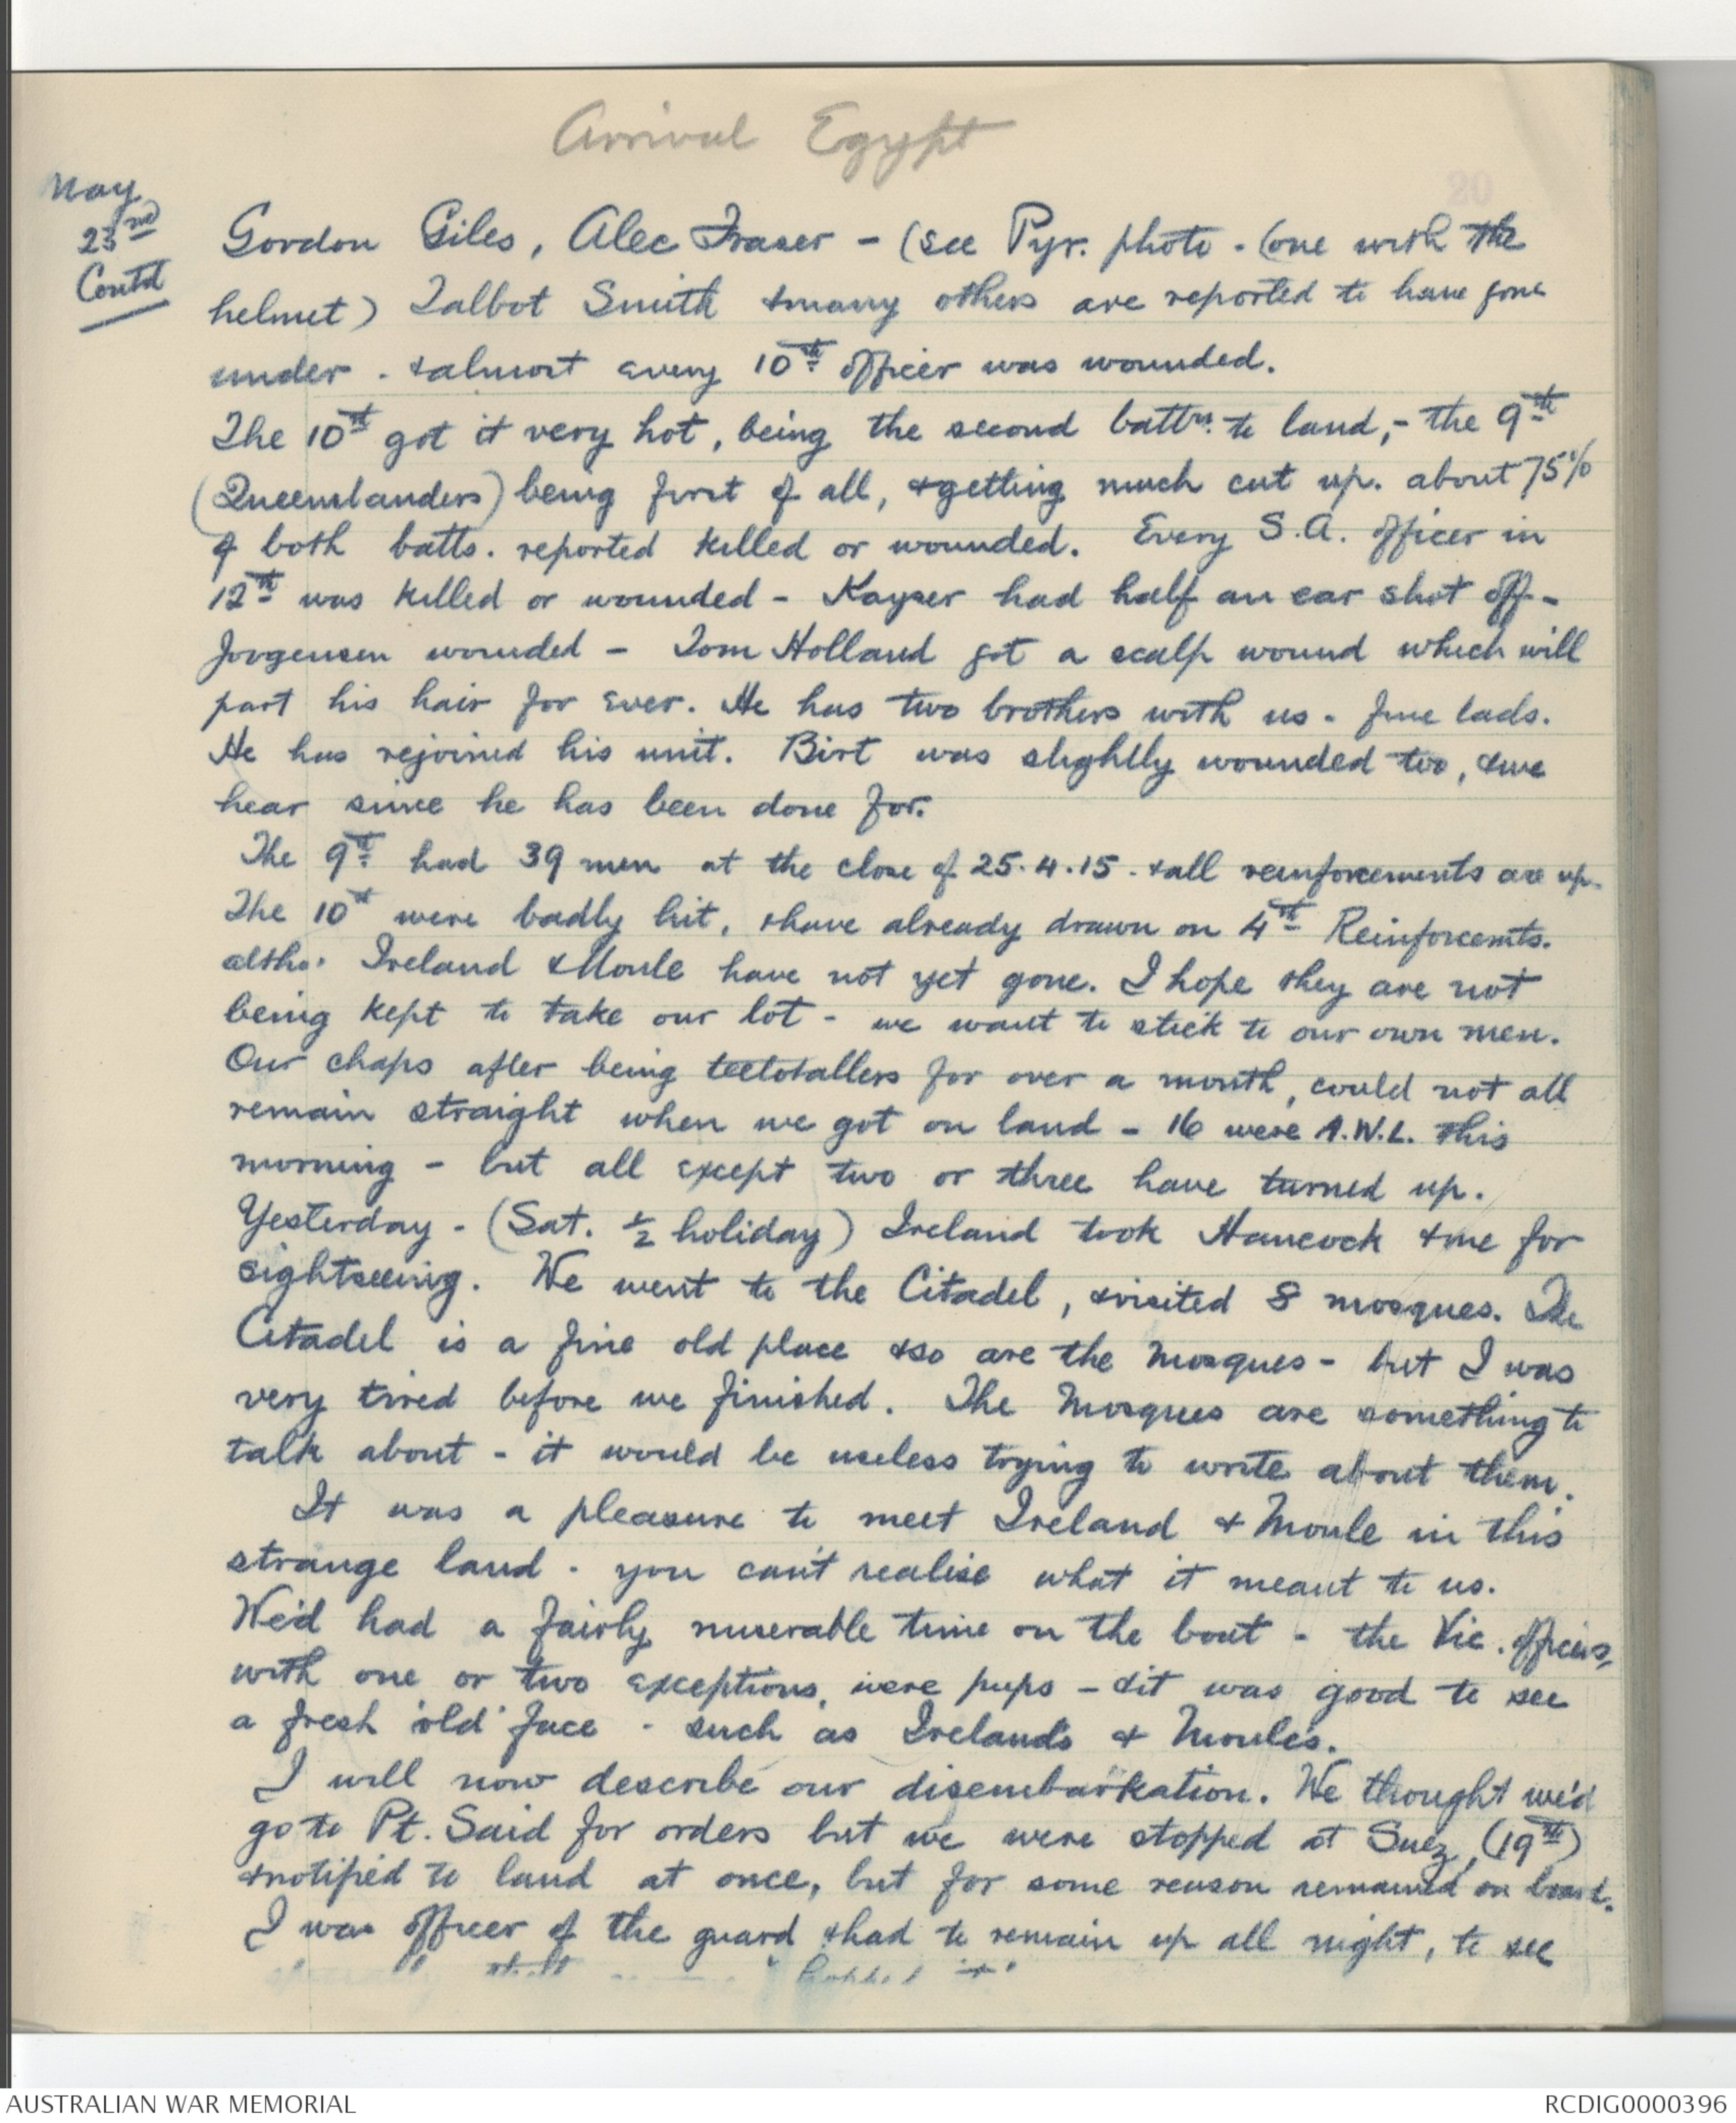 Arrival Egypt
20
May
23rd
Contd
Gordon Giles, Alec Fraser - (see Pyr. photo - (one with the
helmet) Talbot Smith & many others are reported to have gone
under - & almost every 10th officer was wounded.
The 10th got it very hot, being the second battn. to land, - the 9th
(Queenslanders) being first of all, & getting much cut up. about 75%
of both batts. reported killed or wounded. Every S.A. officer in
12th was killed or wounded - Kayser had half an ear shot off -
Jorgensen wounded - Tom Holland got a scalp wound which will
part his hair for ever. He has two brothers with us - fine lads.
He has rejoined his unit. Birt was slightly wounded too, & we
hear since he has been done for.
The 9th had 39 men at the close of 25.4.15 - & all reinforcements are up.
The 10th were badly hit, & have already drawn on 4th Reinforcemts.
altho. Ireland & Moule have not yet gone. I hope they are not
being kept to take our lot - we want to stick to our own men.
Our chaps after being teetotallers for over a month, could not all
remain straight when we got on land - 16 were A.W.L. this
morning - but all except two or three have turned up.
Yesterday - (Sat. ½ holiday) Ireland took Hancock & me for
sightseeing. We went to the Citadel, & visited 8 mosques. The
Citadel is a fine old place & so are the Mosques - but I was
very tired before we finished. The Mosques are something to
talk about - it would be useless trying to write about them.
It was a pleasure to meet Ireland & Moule in this
strange land - you can't realise what it meant to us.
We'd had a fairly miserable time on the boat - the Vic. officers,
with one or two exceptions, were pups - & it was good to see
a fresh 'old' face - such as Ireland's & Moule's.
I will now describe our disembarkation. We thought we'd
go to Pt. Said for orders but we were stopped at Suez, (19th)
& notified to land at once, but for some reason remained on board.
I was officer of the guard & had to remain up all night, to see
AUSTRALIAN WAR MEMORIAL
RCDIG0000396